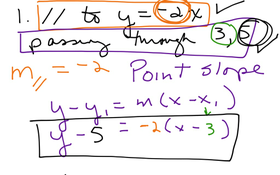 1. // to y = -2x ✓
passing through 3, 5
m// = -2 Point slope
y - y₁ = m(x - x₁)
y - 5 = -2(x - 3)